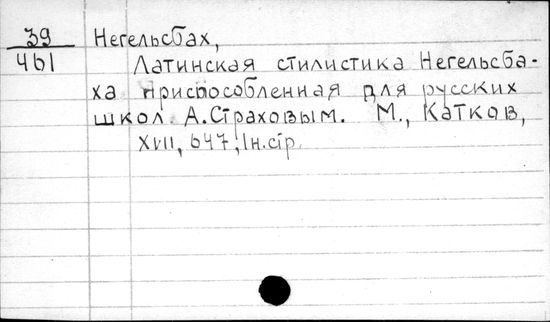 39 Негельсбах,
461 Латинская стилистика Негельсба-
ха приспособленная для русских
школ А.Страховым. М., Катков,
XVII, 647, 1н.стр.